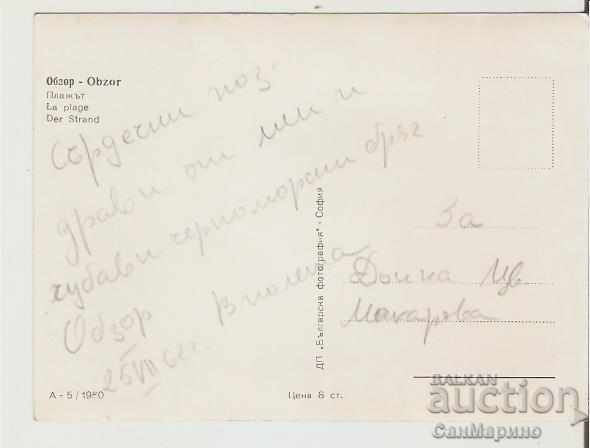 Обзор - Obzor
Плажът
La plage
Der Strand
Сърдечни поз
драви от мили и
хубави черноморски бряг
Обзор Виолета
25 VII 62 г.
ДП „Българска фотография" - София
За
Донка Цв
Макарова
А - 5 / 1960
Цена 8 ст.
BALKAN
auction
СанМарино